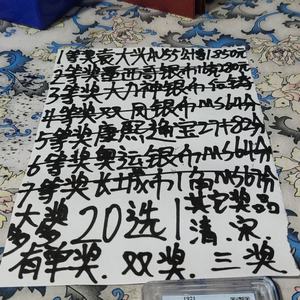 1等奖袁大头AU55公博1850元
2等奖墨西哥银币
3等奖大力神银币
4等奖双凤银币MS64分
5等奖康熙通宝27廾82分
6等奖奥运银币MS64分
7等奖长城币1角MS67分
大奖 20选1 其它奖品
多多 清.宋
有单奖.双奖.三奖
1921